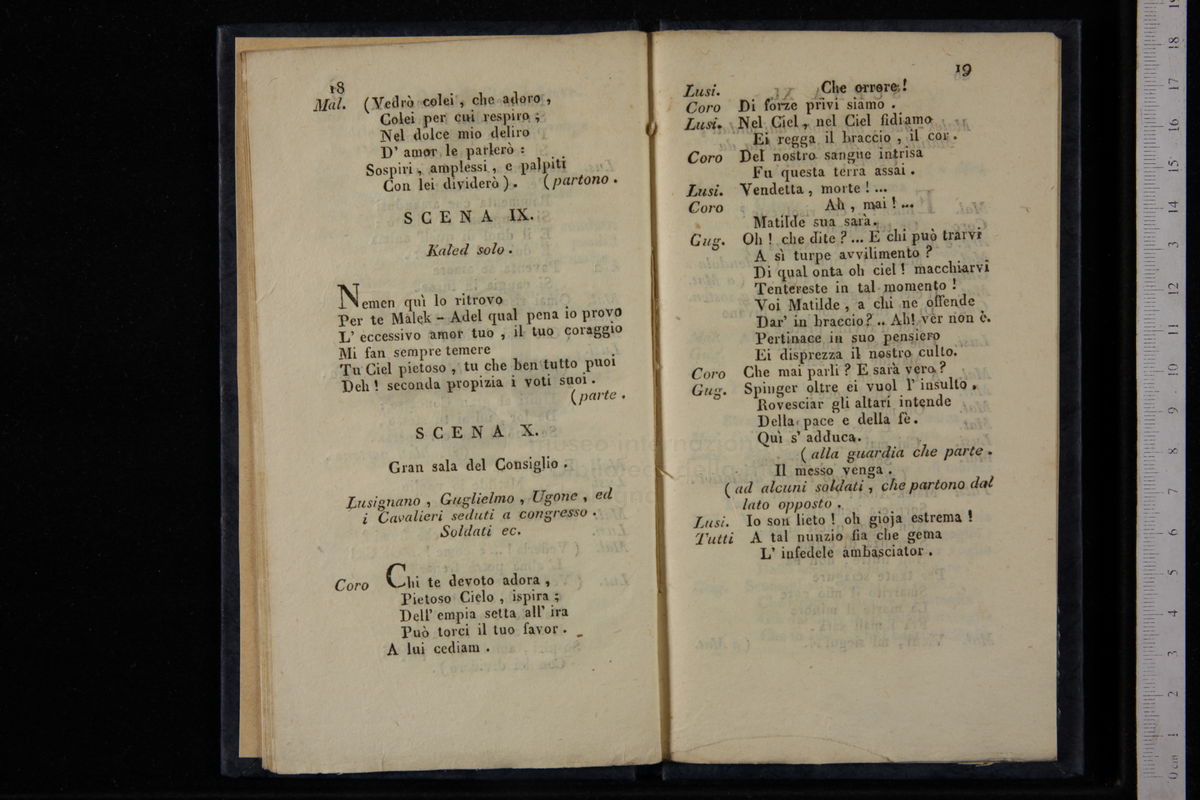 18
Mal. (Vedrò colei, che adoro,
Colei per cui respiro;
Nel dolce mio deliro
D' amor le parlerò:
Sospiri, amplessi, e palpiti
Con lei dividerò). (partono.
SCENA IX.
Kaled solo.
Nemen quì lo ritrovo
Per te Malek-Adel qual pena io provo
L' eccessivo amor tuo, il tuo coraggio
Mi fan sempre temere
Tu Ciel pietoso, tu che ben tutto puoi
Deh! seconda propizia i voti suoi.
(parte.
SCENA X.
Gran sala del Consiglio.
Lusignano, Guglielmo, Ugone, ed
i Cavalieri seduti a congresso.
Soldati ec.
Coro Chi te devoto adora,
Pietoso Cielo, ispira;
Dell' empia setta all' ira
Può torci il tuo favor.
A lui cediam.
19
Lusi. Che orrore!
Coro Di forze privi siamo.
Lusi. Nel Ciel, nel Ciel fidiamo
Ei regga il braccio, il cor.
Coro Del nostro sangue intrisa
Fu questa terra assai.
Lusi. Vendetta, morte!...
Coro Ah, mai!...
Matilde sua sarà.
Gug. Oh! che dite?... E chi può trarvi
A sì turpe avvilimento?
Di qual onta oh ciel! macchiarvi
Tentereste in tal momento!
Voi Matilde, a chi ne offende
Dar' in braccio?.. Ah! ver non è.
Pertinace in suo pensiero
Ei disprezza il nostro culto.
Coro Che mai parli? E sarà vero?
Gug. Spinger oltre ei vuol l' insulto.
Rovesciar gli altari intende
Della pace e della fè.
Quì s' adduca.
(alla guardia che parte.
Il messo venga.
(ad alcuni soldati, che partono dal
lato opposto.
Lusi. Io son lieto! oh gioja estrema!
Tutti A tal nunzio fia che gema
L' infedele ambasciator.